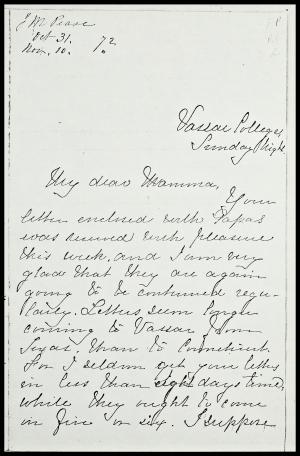 J M Pease
Oct 31.
Nov. 10. 72.
Vassar College,
Sunday Night
My dear Mamma,
Your
letter enclosed with Papas
was received with pleasure
this week, and I am very
glad that they are again
going to be continued regu-
larly. Letters seem longer
coming to Vassar from
than to Connecticut.
For I seldom get your letters
in less than eight days time,
while they ought to come
in five or six. I suppose